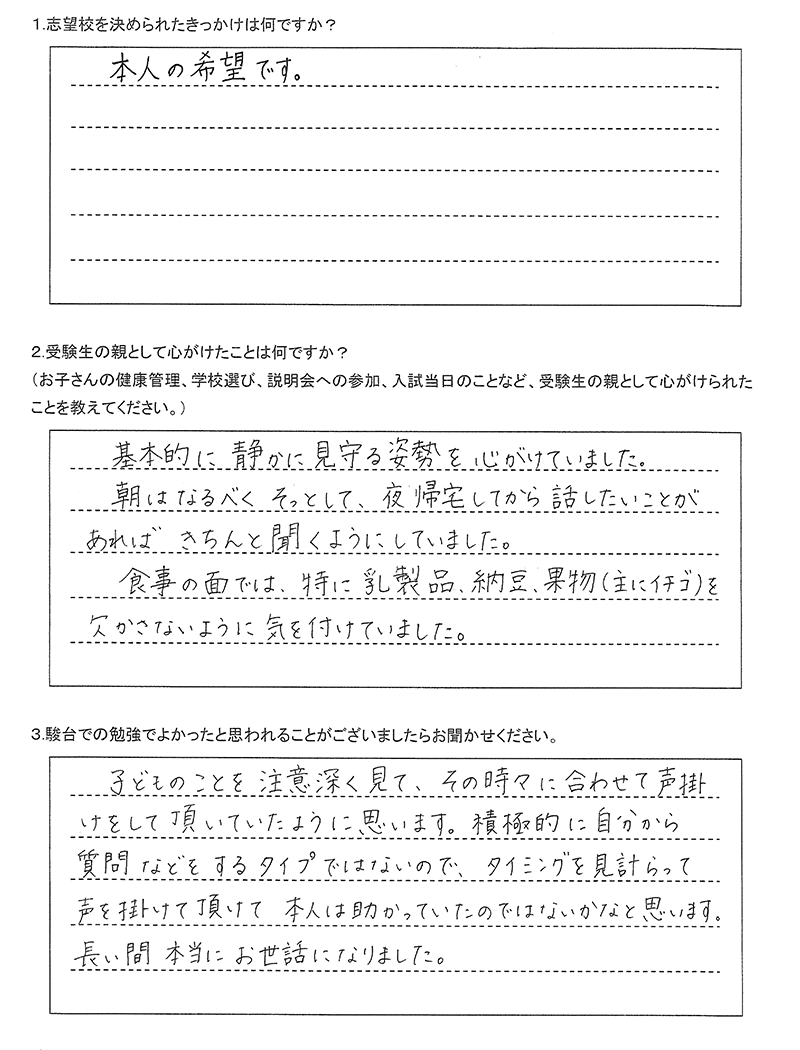 1.志望校を決められたきっかけは何ですか？
本人の希望です。
2.受験生の親として心がけたことは何ですか？
（お子さんの健康管理、学校選び、説明会への参加、入試当日のことなど、受験生の親として心がけられた
ことを教えてください。）
基本的に静かに見守る姿勢を心がけていました。
朝はなるべくそっとして、夜帰宅してから話したいことが
あればきちんと聞くようにしていました。
食事の面では、特に乳製品、納豆、果物(主にイチゴ)を
欠かさないように気を付けていました。
3.駿台での勉強でよかったと思われることがございましたらお聞かせください。
子どものことを注意深く見て、その時々に合わせて声掛
けをして頂いていたように思います。積極的に自分から
質問などをするタイプではないので、タイミングを見計らって
声を掛けて頂けて本人は助かっていたのではないかなと思います。
長い間本当にお世話になりました。